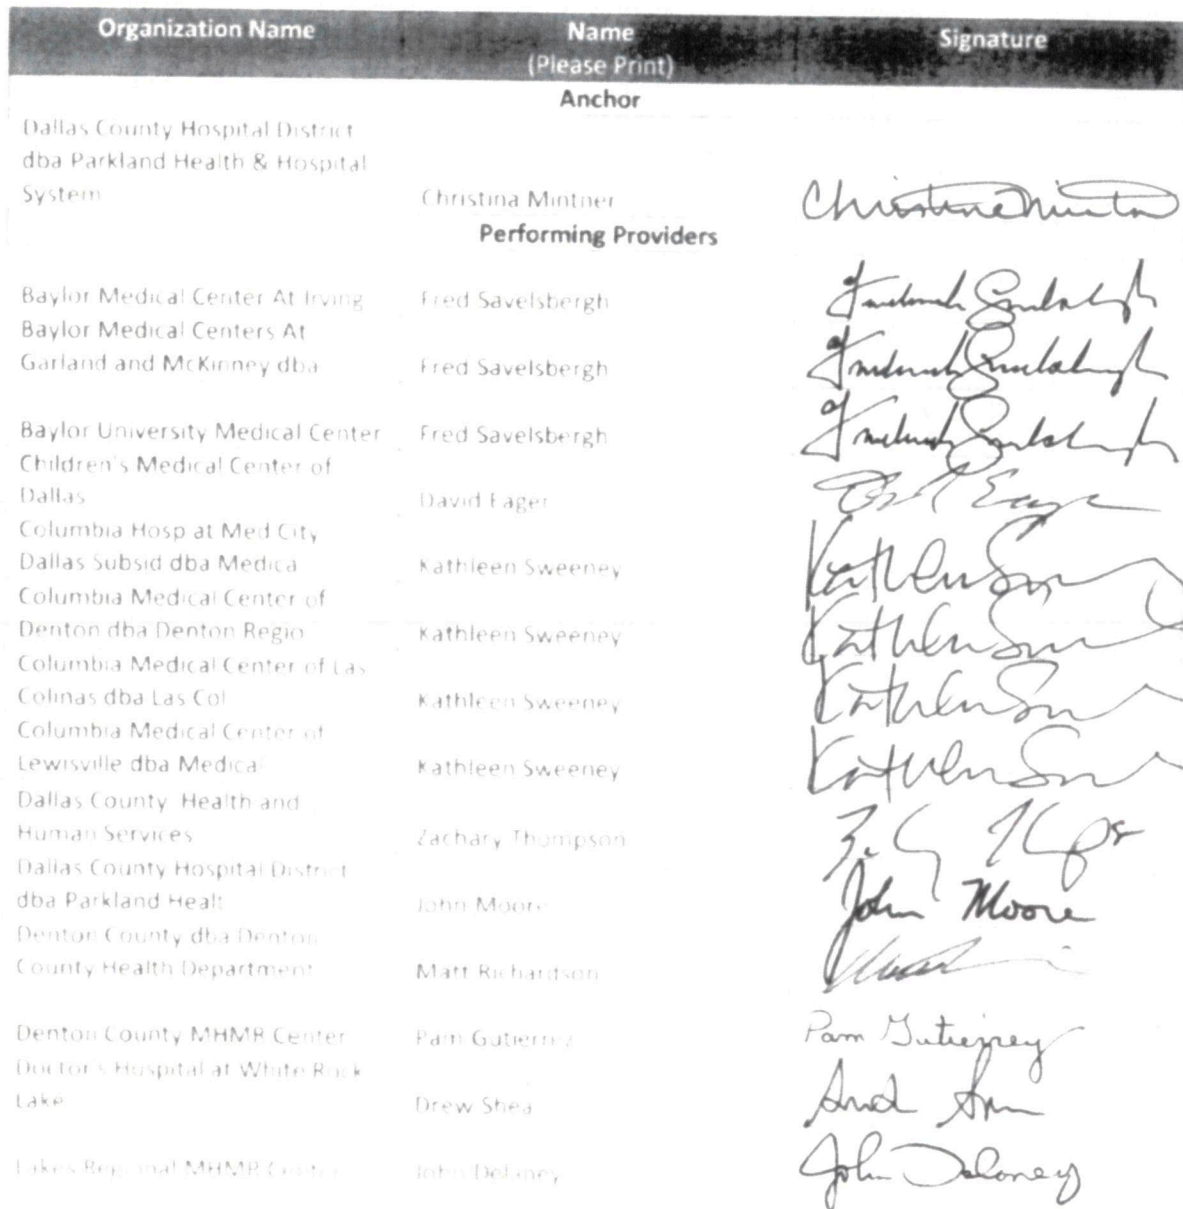 Organization Name Name Signature
(Please Print)
Anchor
Dallas County Hospital District
dba Parkland Health & Hospital
System Christina Mintner Christina Mintner
Performing Providers
Baylor Medical Center At Irving Fred Savelsbergh
Baylor Medical Centers At
Garland and McKinney dba Fred Savelsbergh
Baylor University Medical Center Fred Savelsbergh
Children's Medical Center of
Dallas David Eager
Columbia Hosp at Med City
Dallas Subsid dba Medica Kathleen Sweeney
Columbia Medical Center of
Denton dba Denton Regio Kathleen Sweeney
Columbia Medical Center of Las
Colinas dba Las Col Kathleen Sweeney
Columbia Medical Center of
Lewisville dba Medical Kathleen Sweeney
Dallas County Health and
Human Services Zachary Thompson
Dallas County Hospital District
dba Parkland Healt John Moore John Moore
Denton County dba Denton
County Health Department Matt Richardson
Denton County MHMR Center Pam Gutierrez Pam Gutierrez
Doctor's Hospital at White Rock
Lake Drew Shea
Lakes Regional MHMR Center John Delaney John Delaney